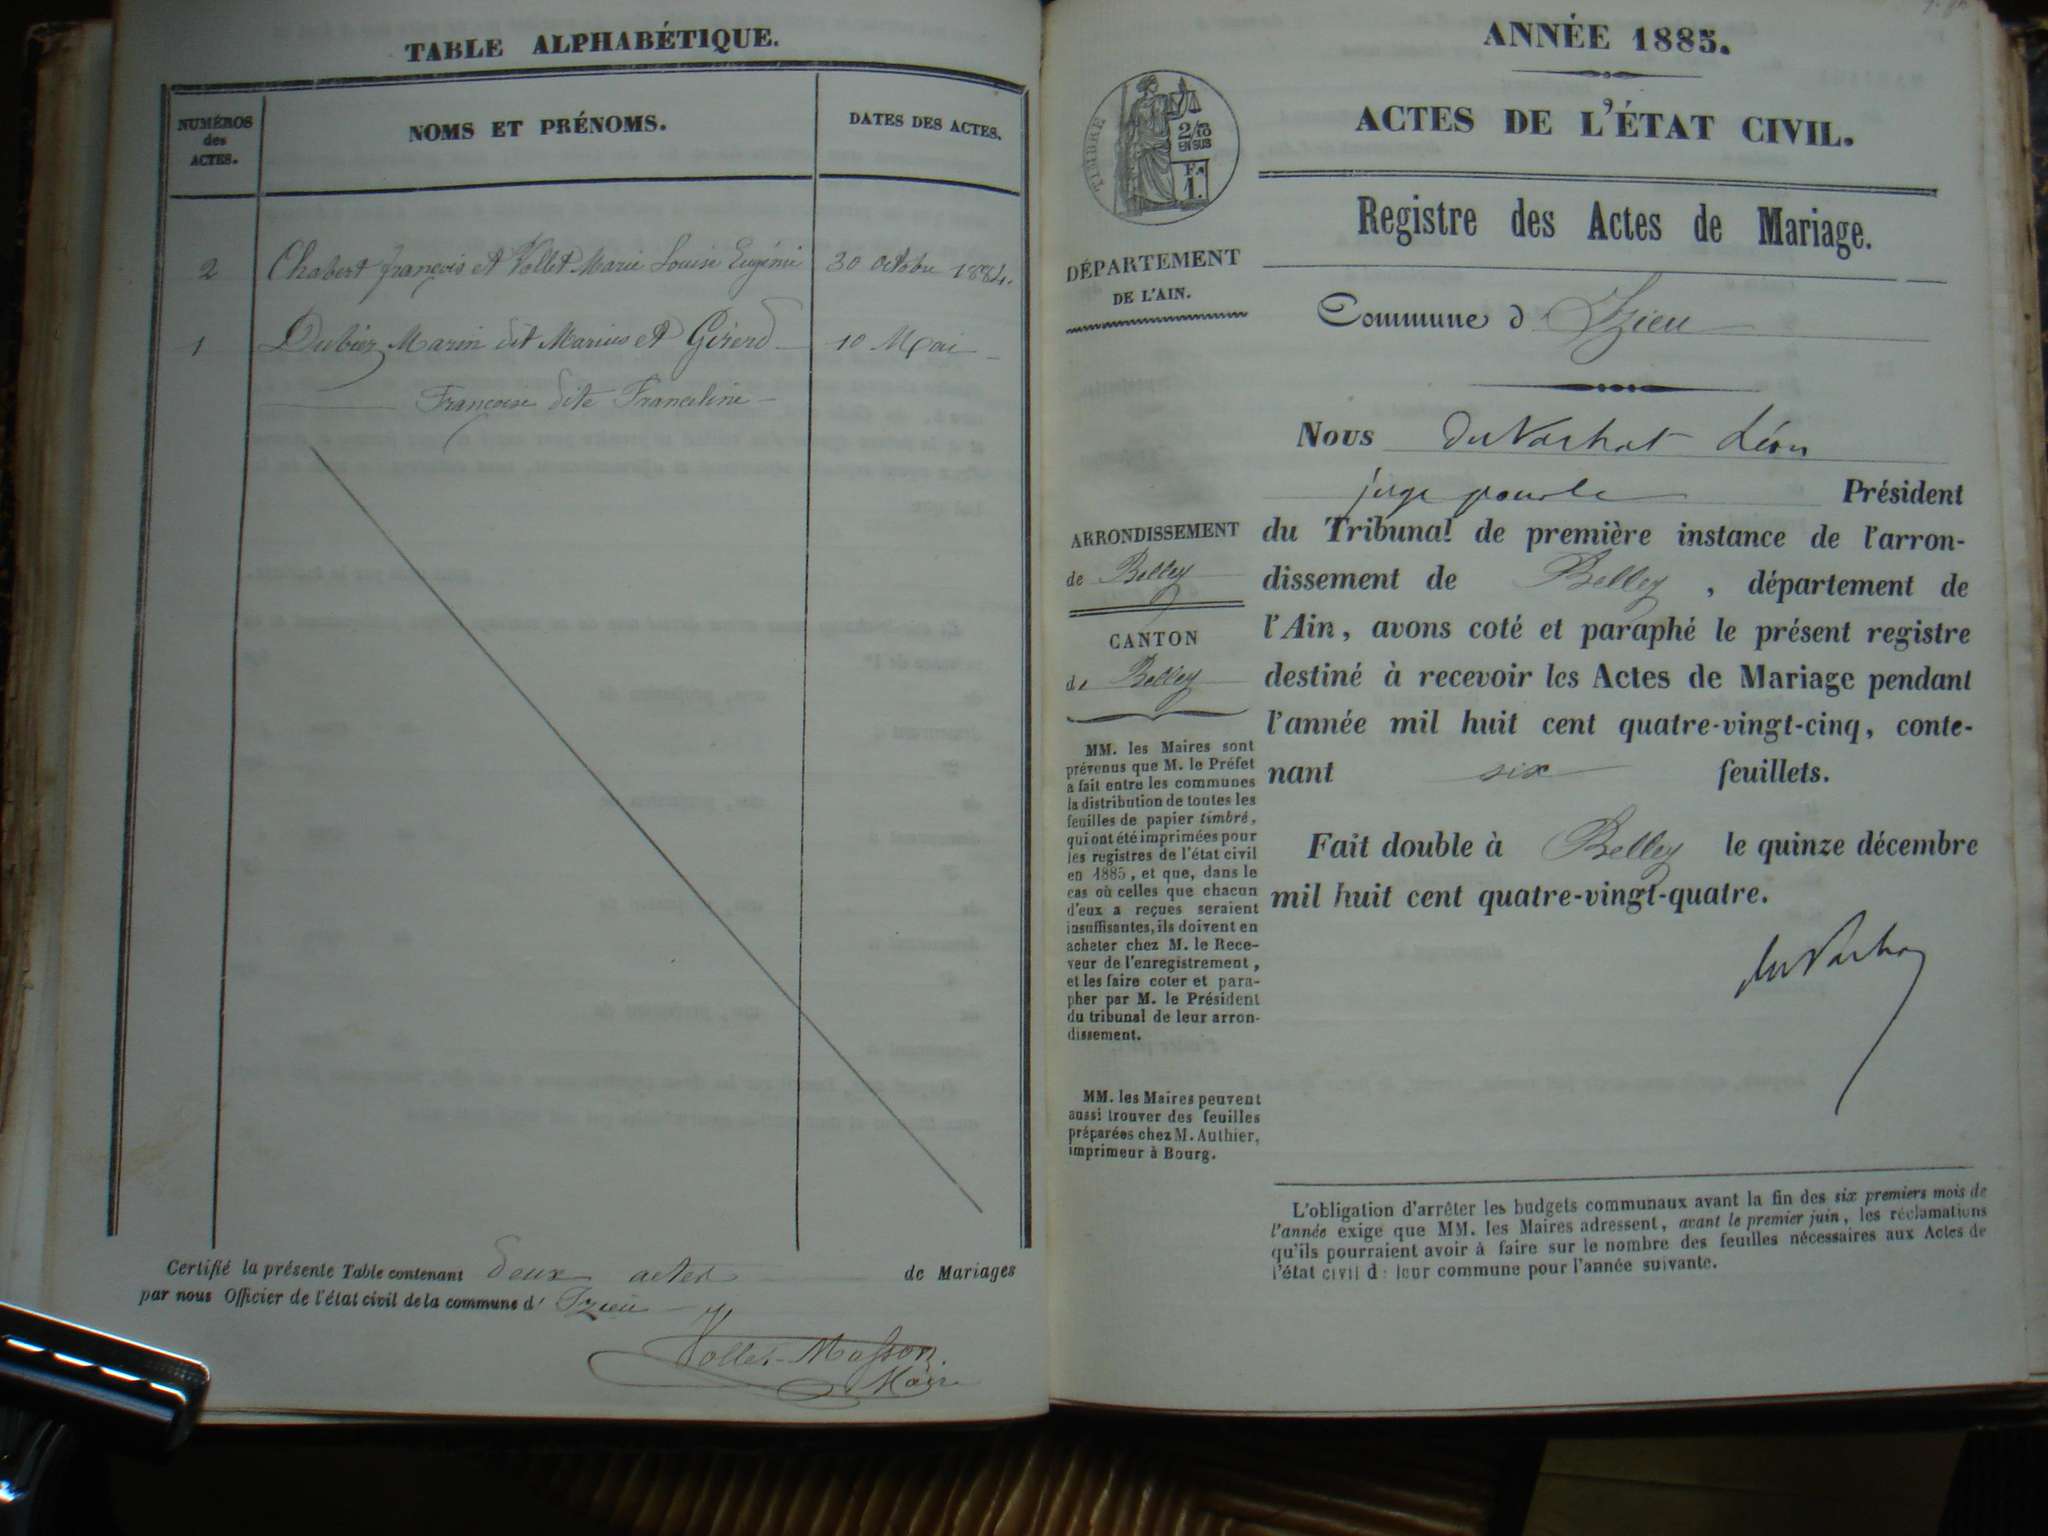 TABLE ALPHABÉTIQUE.
NUMÉROS
des
ACTES.
NOMS ET PRÉNOMS.
DATES DES ACTES.
2 Chabert françois et Vollet Marie Louise Eugénie 30 octobre 1884.
1 Dubiez Marin dit Marius et Gérerd 10 Mai
Françoise dite Franceline
Certifié la présente Table contenant deux actes de Mariages
par nous Officier de l'état civil de la commune d' Izieu
Vollet-Masson.
Maire
ANNÉE 1885.
ACTES DE L'ÉTAT CIVIL.
TIMBRE
2/10
EN SUS
F.
1.
Registre des Actes de Mariage.
DÉPARTEMENT
DE L'AIN.
Commune d'Izieu
Nous du Vachat Léon
juge pour le Président
du Tribunal de première instance de l'arron-
dissement de Belley, département de
l'Ain, avons coté et paraphé le présent registre
destiné à recevoir les Actes de Mariage pendant
l'année mil huit cent quatre-vingt-cinq, conte-
nant six feuillets.
Fait double à Belley le quinze décembre
mil huit cent quatre-vingt-quatre.
du Vachat
ARRONDISSEMENT
de Belley
CANTON
de Belley
MM. les Maires sont
prévenus que M. le Préfet
a fait entre les communes
la distribution de toutes les
feuilles de papier timbré,
qui ont été imprimées pour
les registres de l'état civil
en 1885, et que, dans le
cas où celles que chacun
d'eux a reçues seraient
insuffisantes, ils doivent en
acheter chez M. le Rece-
veur de l'enregistrement,
et les faire coter et para-
pher par M. le Président
du tribunal de leur arron-
dissement.
MM. les Maires peuvent
aussi trouver des feuilles
préparées chez M. Authier,
imprimeur à Bourg.
L'obligation d'arrêter les budgets communaux avant la fin des six premiers mois de
l'année exige que MM. les Maires adressent, avant le premier juin, les réclamations
qu'ils pourraient avoir à faire sur le nombre des feuilles nécessaires aux Actes de
l'état civil de leur commune pour l'année suivante.